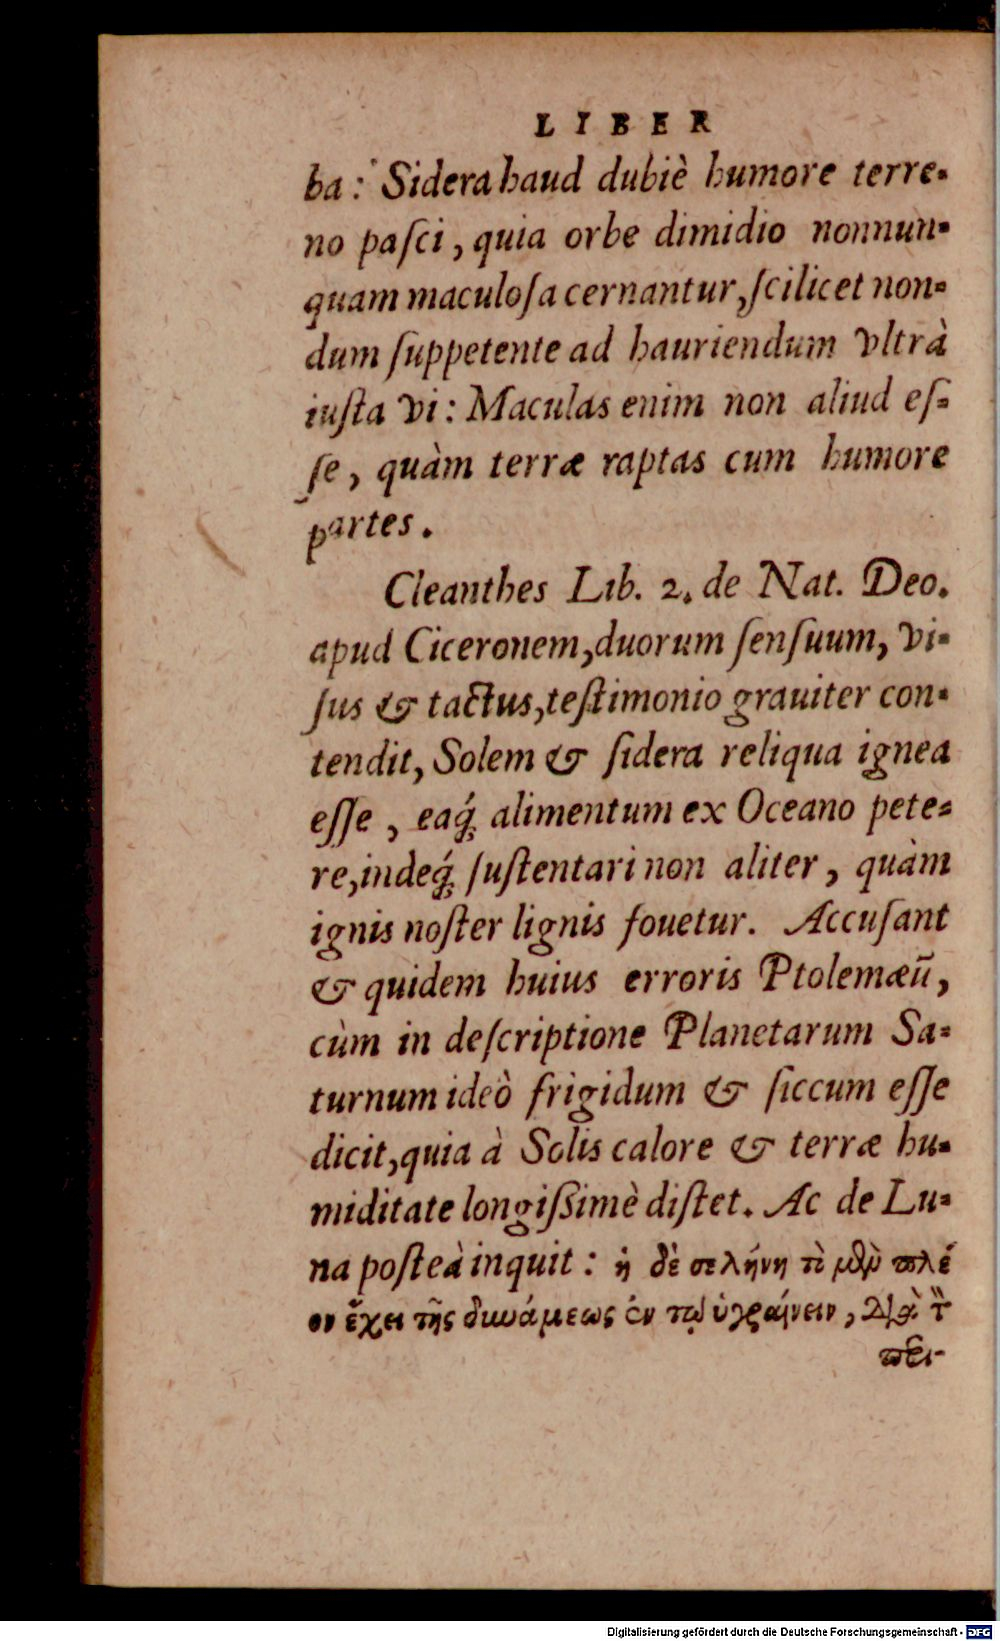 LIBER
ba: Sidera haud dubiè humore terre-
no paſci, quia orbe dimidio nonnun-
quam maculoſa cernantur, ſcilicet non-
dum ſuppetente ad hauriendum vltrà
iuſta vi: Maculas enim non aliud eſ-
ſe, quàm terræ raptas cum humore
partes.
Cleanthes Lib. 2. de Nat. Deo.
apud Ciceronem, duorum ſenſuum, vi-
ſus & tactus, teſtimonio grauiter con-
tendit, Solem & ſidera reliqua ignea
eſſe, eaq́; alimentum ex Oceano pete-
re, indeq́; ſuſtentari non aliter, quàm
ignis noſter lignis fouetur. Accuſant
& quidem huius erroris Ptolemæū,
cùm in deſcriptione Planetarum Sa-
turnum ideò frigidum & ſiccum eſſe
dicit, quia à Solis calore & terræ hu-
miditate longiſsimè diſtet. Ac de Lu-
na poſteà inquit: ἡ δὲ σελήνη τὸ μὲν πλέ
ον ἔχει τῆς δυνάμεως ἐν τῷ ὑγραίνειν, διὰ τ
περι-
Digitalisierung gefördert durch die Deutsche Forschungsgemeinschaft - DFG